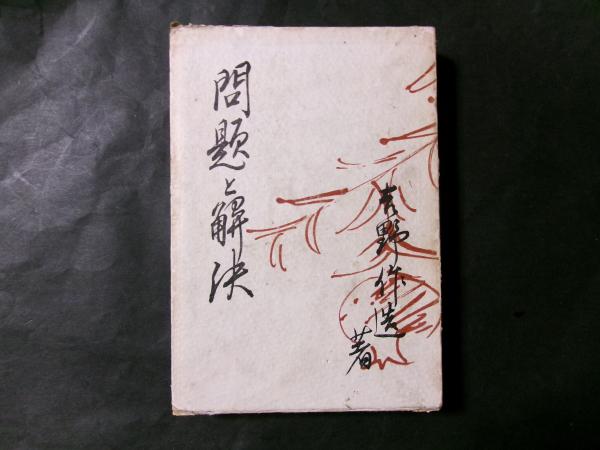 問題と解決
吉野作造著